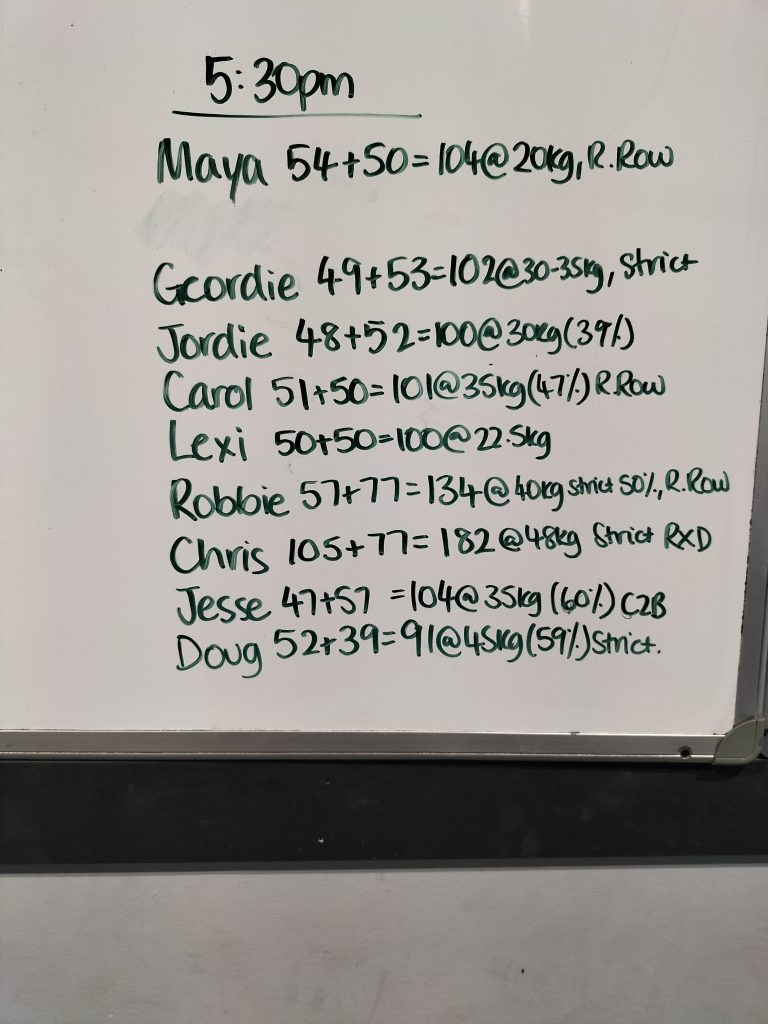 5:30pm
Maya 54+50=104@20kg, R.Row
Geordie 49+53=102@30-35kg, Strict
Jordie 48+52=100@30kg(39%)
Carol 51+50=101@35kg(47%) R.Row
Lexi 50+50=100@22.5kg
Robbie 57+77=134@40kg Strict 50%, R.Row
Chris 105+77=182@48kg Strict RXD
Jesse 47+57 =104@35kg (60%) C2B
Doug 52+39=91@45kg(59%)Strict.